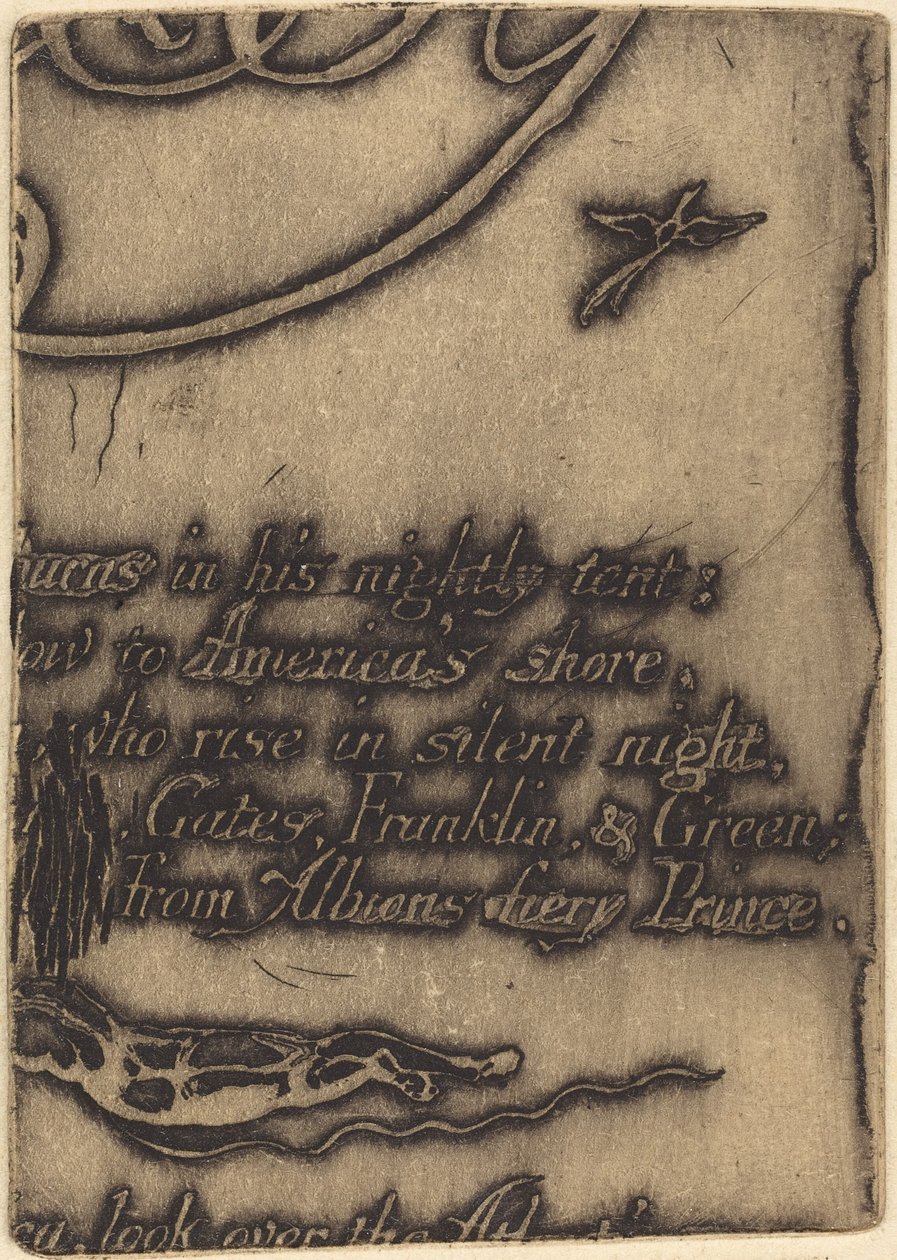 urns in his nightly tent;
ow to America's shore;
, who rise in silent night,
. Gates, Franklin, & Green;
From Albions fiery Prince.
look over the Atlanti